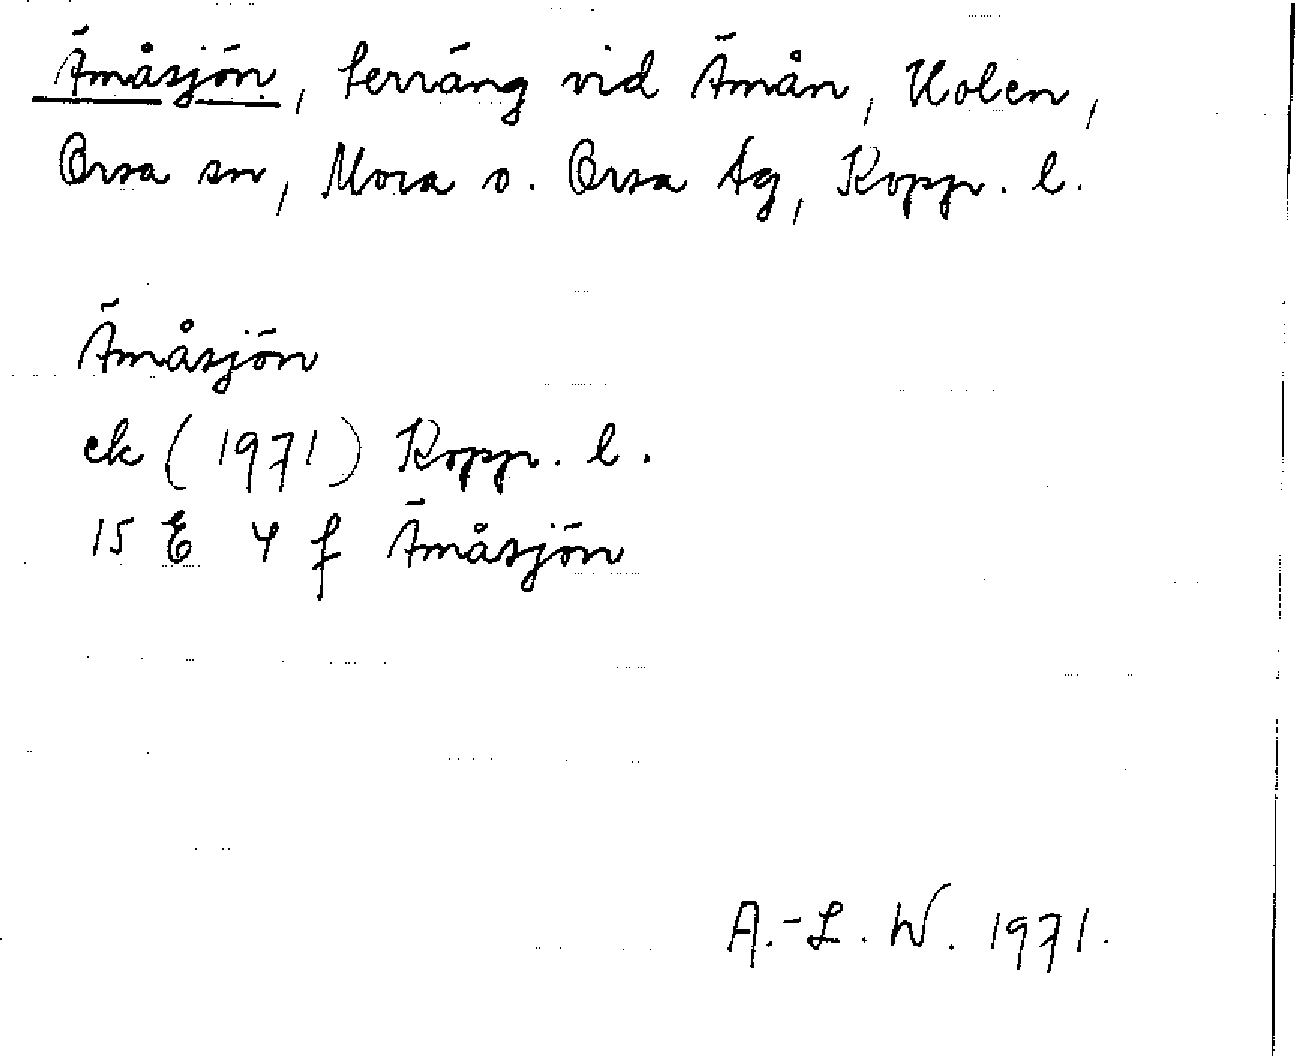 Ämåsjön, terräng vid Ämån, Holen,
Orsa sn, Mora o. Orsa tg, Kopp. l.
Ämåsjön
ek (1971) Kopp. l.
15 E 4 f Ämåsjön
A.-L. W. 1971.